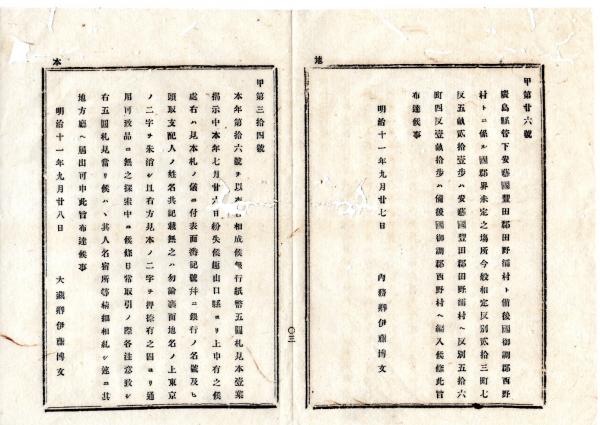 甲第廿六號
廣島縣管下安藝國豐田郡田野浦村ト備後國御調郡西野
村トニ係ル國郡界未定之場所今般相定反別貳拾三町七
反五畝貳拾壹步ハ安藝國豐田郡田野浦村ヘ反別五拾六
町四反壹畝拾步ハ備後國御調郡西野村ヘ編入候條此旨
布達候事
明治十一年九月廿七日
內務卿伊藤博文
〇三
地
本
甲第三拾四號
本年第拾六號ヲ以 相成候 行紙幣五圓札見本壹葉
揭示中本年七月廿六日紛失候趣山口縣ヨリ上申有之候
處右ハ見本札ノ儀ニ付表面海記號幷ニ銀行ノ名號及ヒ
頭取支配人ノ姓名共記載無之ハ勿論裏面地名ノ上東京
ノ二字ヲ朱 シ且右方見本ノ二字ヲ押捺有之固ヨリ通
用可致品ニ無之探索中ニ候條日常取引ノ際各注意致シ
右五圓札見當リ候ハヽ其人名宿所等精細相糺シ速ニ其
地方廳ヘ屆出可申此旨布達候事
明治十一年九月廿八日
大藏卿伊藤博文